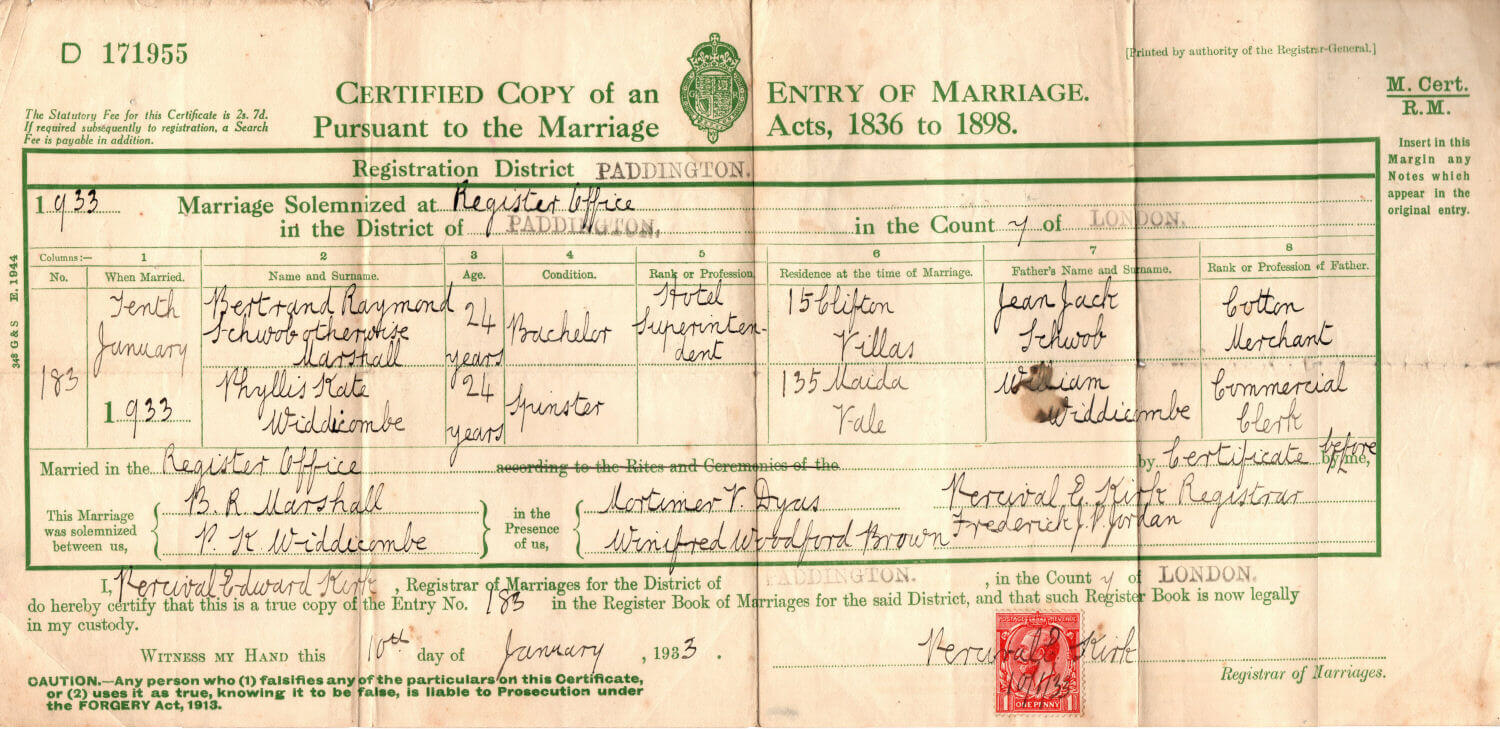 D 171955
[Printed by authority of the Registrar-General.]
CERTIFIED COPY of an ENTRY OF MARRIAGE.
Pursuant to the Marriage Acts, 1836 to 1898.
M. Cert.
R.M.
The Statutory Fee for this Certificate is 2s. 7d.
If required subsequently to registration, a Search
Fee is payable in addition.
Insert in this
Margin any
Notes which
appear in the
original entry.
Registration District PADDINGTON.
1933 Marriage Solemnized at Register Office
in the District of PADDINGTON, in the County of LONDON.
348 G & S E.1944
Columns:— 1 2 3 4 5 6 7 8
No. When Married. Name and Surname. Age. Condition. Rank or Profession. Residence at the time of Marriage. Father's Name and Surname. Rank or Profession of Father.
183
Tenth
January
1933
Bertrand Raymond
Schwob otherwise
Marshall
24
years
Bachelor
Hotel
Superinten-
dent
15 Clifton
Villas
Jean Jack
Schwob
Cotton
Merchant
Phyllis Kate
Widdicombe
24
years
Spinster
135 Maida
Vale
William
Widdicombe
Commercial
Clerk
Married in the Register Office according to the Rites and Ceremonies of the by Certificate before by me,
This Marriage
was solemnized
between us,
B. R. Marshall
P. K. Widdicombe
in the
Presence
of us,
Mortimer V. Dyas
Winifred Woodford Brown
Percival E. Kirk Registrar
Frederick J. P. Jordan
I, Percival Edward Kirk, Registrar of Marriages for the District of PADDINGTON. , in the County of LONDON.
do hereby certify that this is a true copy of the Entry No. 183 in the Register Book of Marriages for the said District, and that such Register Book is now legally
in my custody.
WITNESS MY HAND this 10th day of January, 1933.
Percival E Kirk
Registrar of Marriages.
POSTAGE REVENUE
10/1/33
1 ONE PENNY 1
CAUTION.—Any person who (1) falsifies any of the particulars on this Certificate,
or (2) uses it as true, knowing it to be false, is liable to Prosecution under
the FORGERY Act, 1913.